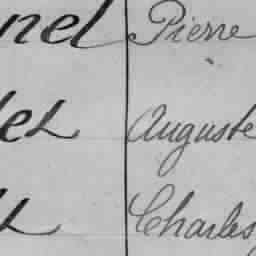 nel Pierre
let Auguste
Charles